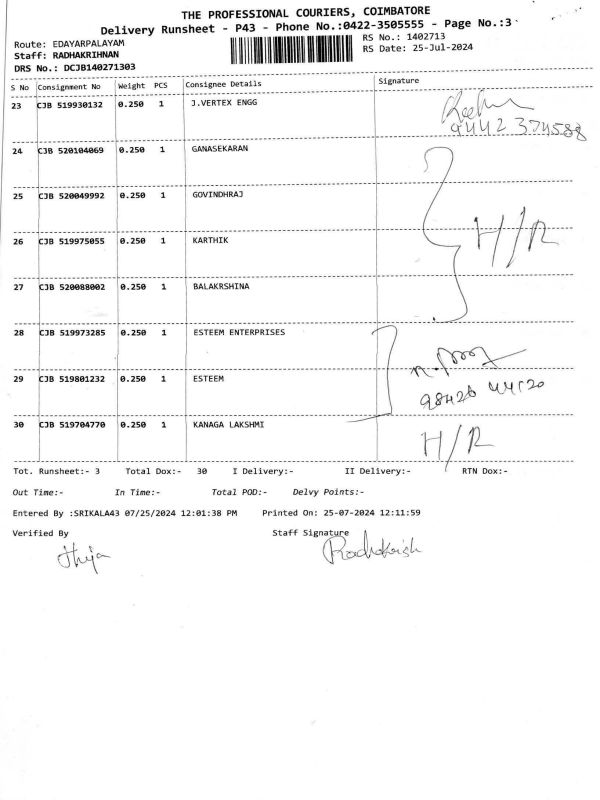 THE PROFESSIONAL COURIERS, COIMBATORE
Delivery Runsheet - P43 - Phone No.:0422-3505555 - Page No.:3
Route: EDAYARPALAYAM
RS No.: 1402713
Staff: RADHAKRIHNAN
RS Date: 25-Jul-2024
DRS No.: DCJB140271303
S No Consignment No Weight PCS Consignee Details Signature
23 CJB 519930132 0.250 1 J.VERTEX ENGG
94442 374588
24 CJB 520104069 0.250 1 GANASEKARAN
25 CJB 520049992 0.250 1 GOVINDHRAJ
H/R
26 CJB 519975055 0.250 1 KARTHIK
27 CJB 520088002 0.250 1 BALAKRSHINA
28 CJB 519973285 0.250 1 ESTEEM ENTERPRISES
29 CJB 519801232 0.250 1 ESTEEM
30 CJB 519704770 0.250 1 KANAGA LAKSHMI
H/R
Tot. Runsheet:- 3 Total Dox:- 30 I Delivery:- II Delivery:- RTN Dox:-
Out Time:- In Time:- Total POD:- Delvy Points:-
Entered By :SRIKALA43 07/25/2024 12:01:38 PM Printed On: 25-07-2024 12:11:59
Verified By Staff Signature
Radhakrish